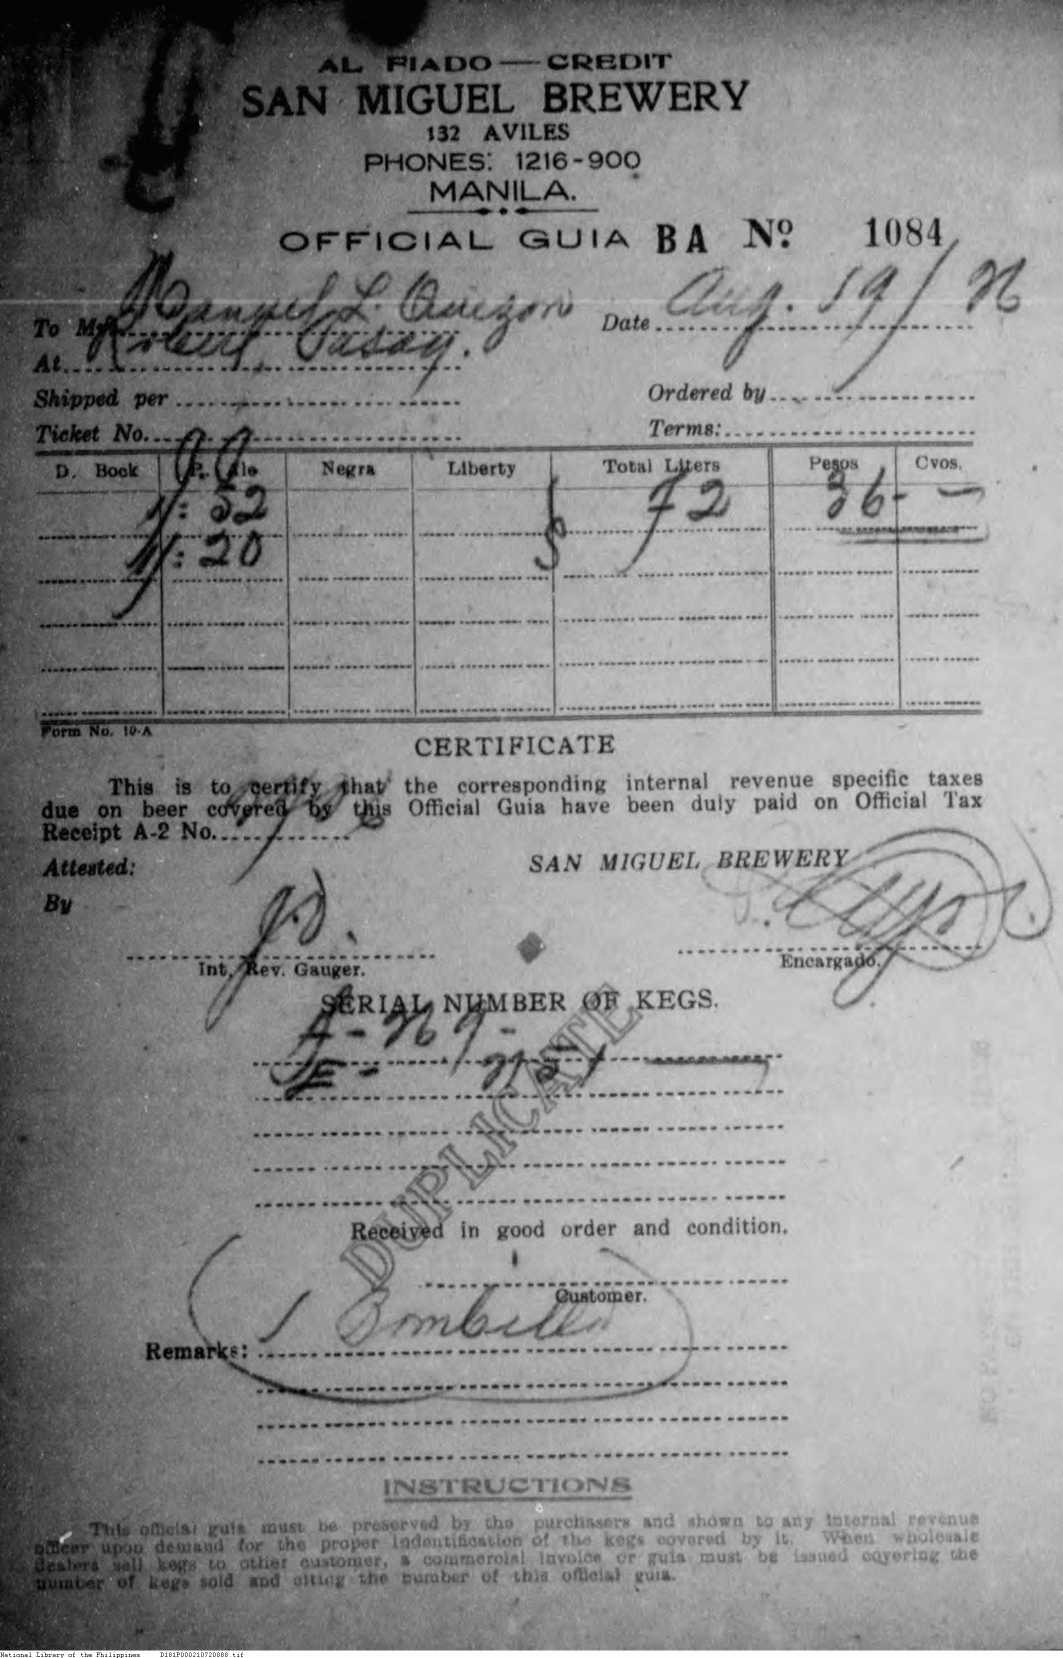 AL FIADO — CREDIT
SAN MIGUEL BREWERY
132 AVILES
PHONES: 1216-900
MANILA.
OFFICIAL GUIA BA Nº 1084
To Mr. Manuel L. Quezon Date Aug. 19/
At Pasay.
Shipped per Ordered by
Ticket No. Terms:
D. Book P. Ale Negra Liberty Total Liters Pesos Cvos.
1/: 52 72 36 - —
1/: 20
Form No. 10-A
CERTIFICATE
This is to certify that the corresponding internal revenue specific taxes
due on beer covered by this Official Guia have been duly paid on Official Tax
Receipt A-2 No.
Attested: SAN MIGUEL BREWERY
By
Int. Rev. Gauger. Encargado.
SERIAL NUMBER OF KEGS.
DUPLICATE
Received in good order and condition.
Customer.
1 Bombilla
Remarks:
INSTRUCTIONS
This official guia must be preserved by the purchasers and shown to any internal revenue
officer upon demand for the proper indentification of the kegs covered by it. When wholesale
dealers sell kegs to other customer, a commercial invoice or guia must be issued covering the
number of kegs sold and citing the number of this official guia.
National Library of the Philippines D181P000210720888.tif